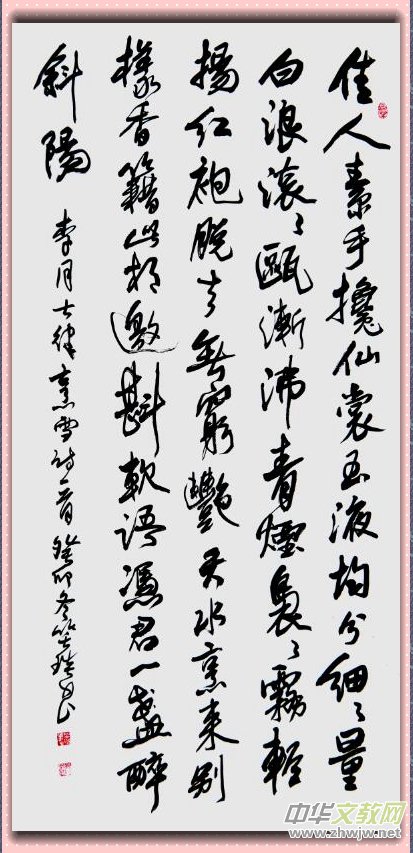 佳人素手攙仙裳玉液均分細〻量
白浪滚〻甌漸沸青煙裊〻霧輕
揚红袍脱去無窮艷天水烹来别
樣香籍此相邀斟軟語憑君一盞醉
斜陽
李月七律烹雪诗一首癸卯冬
中华文教网
www.zhwjw.net